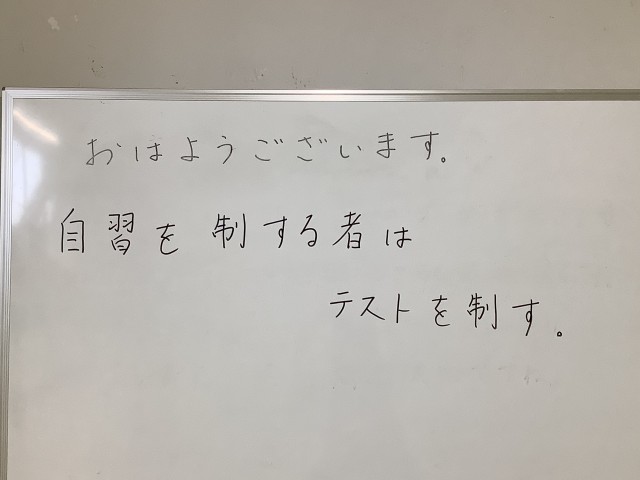 おはようございます。
自習を制する者は
テストを制す。